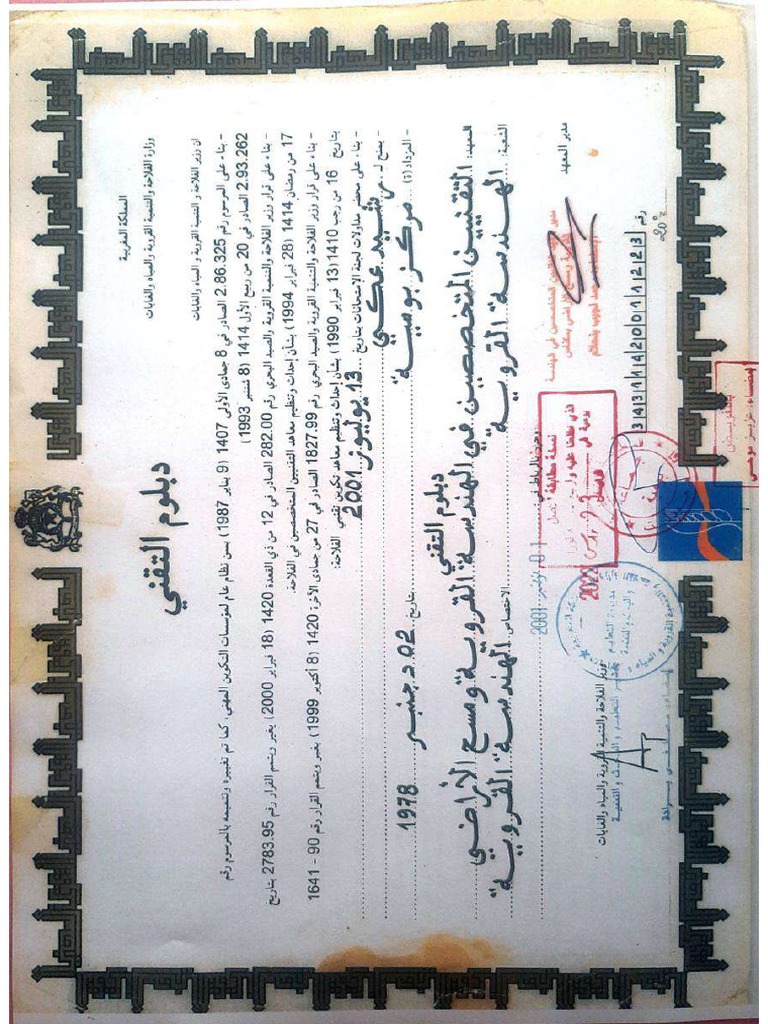 المملكة المغربية
وزارة الفلاحة والتنمية القروية والمياه والغابات
دبلوم التقني
ان وزير الفلاحة و التنمية القروية و المياه والغابات
- بناء على المرسوم رقم 2.86.325 الصادر في 8 جمادى الأولى 1407 (9 يناير 1987) بسن نظام عام لمؤسسات التكوين المهني، كما تم تغييره وتتميمه بالمرسوم رقم
2.93.262 الصادر في 20 من ربيع الأول 1414 (8 شتنبر 1993)
- بناء على قرار وزير الفلاحة والتنمية القروية والصيد البحري رقم 282.00 الصادر في 12 من ذي القعدة 1420 (18 فبراير 2000) بغير ويتمم القرار رقم 2783.95 بتاريخ
17 من رمضان 1414 (28 فبراير 1994) بشأن إحداث وتنظيم معاهد التقنيين المتخصصين في الفلاحة.
- بناء على قرار وزير الفلاحة والتنمية القروية والصيد البحري رقم 1827.99 الصادر في 27 من جمادى الآخرة 1420 (8 أكتوبر 1999) بغير ويتمم القرار رقم 90 - 1641
بتاريخ 16 من رجب 1410 (13 فبراير 1990) بشأن إحداث وتنظيم معاهد تكوين تقنيي الفلاحة.
- بناء على محضر مداولات لجنة الامتحانات بتاريخ 13 يوليوز 2001
- يمنح لـ رشيد عكي
- المزداد(ة) بتاريخ 02 دجنبر 1978
مركز بومية
دبلوم التقني
المعهد: التقنيين المتخصصين في الهندسة القروية ومسح الأراضي
الشعبة: الهندسة القروية الاختصاص: الهندسة القروية
وحرر بالرباط في: 01 2001
مدير المعهد
وزير الفلاحة والتنمية القروية والمياه والغابات
رقم
نسخة مطابقة
2022